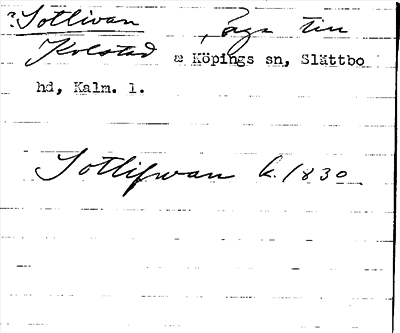 ? Sotlivan, äga till
Kolstad i Köpings sn, Slättbo
hd, Kalm. l.
Sotlifwan k. 1830